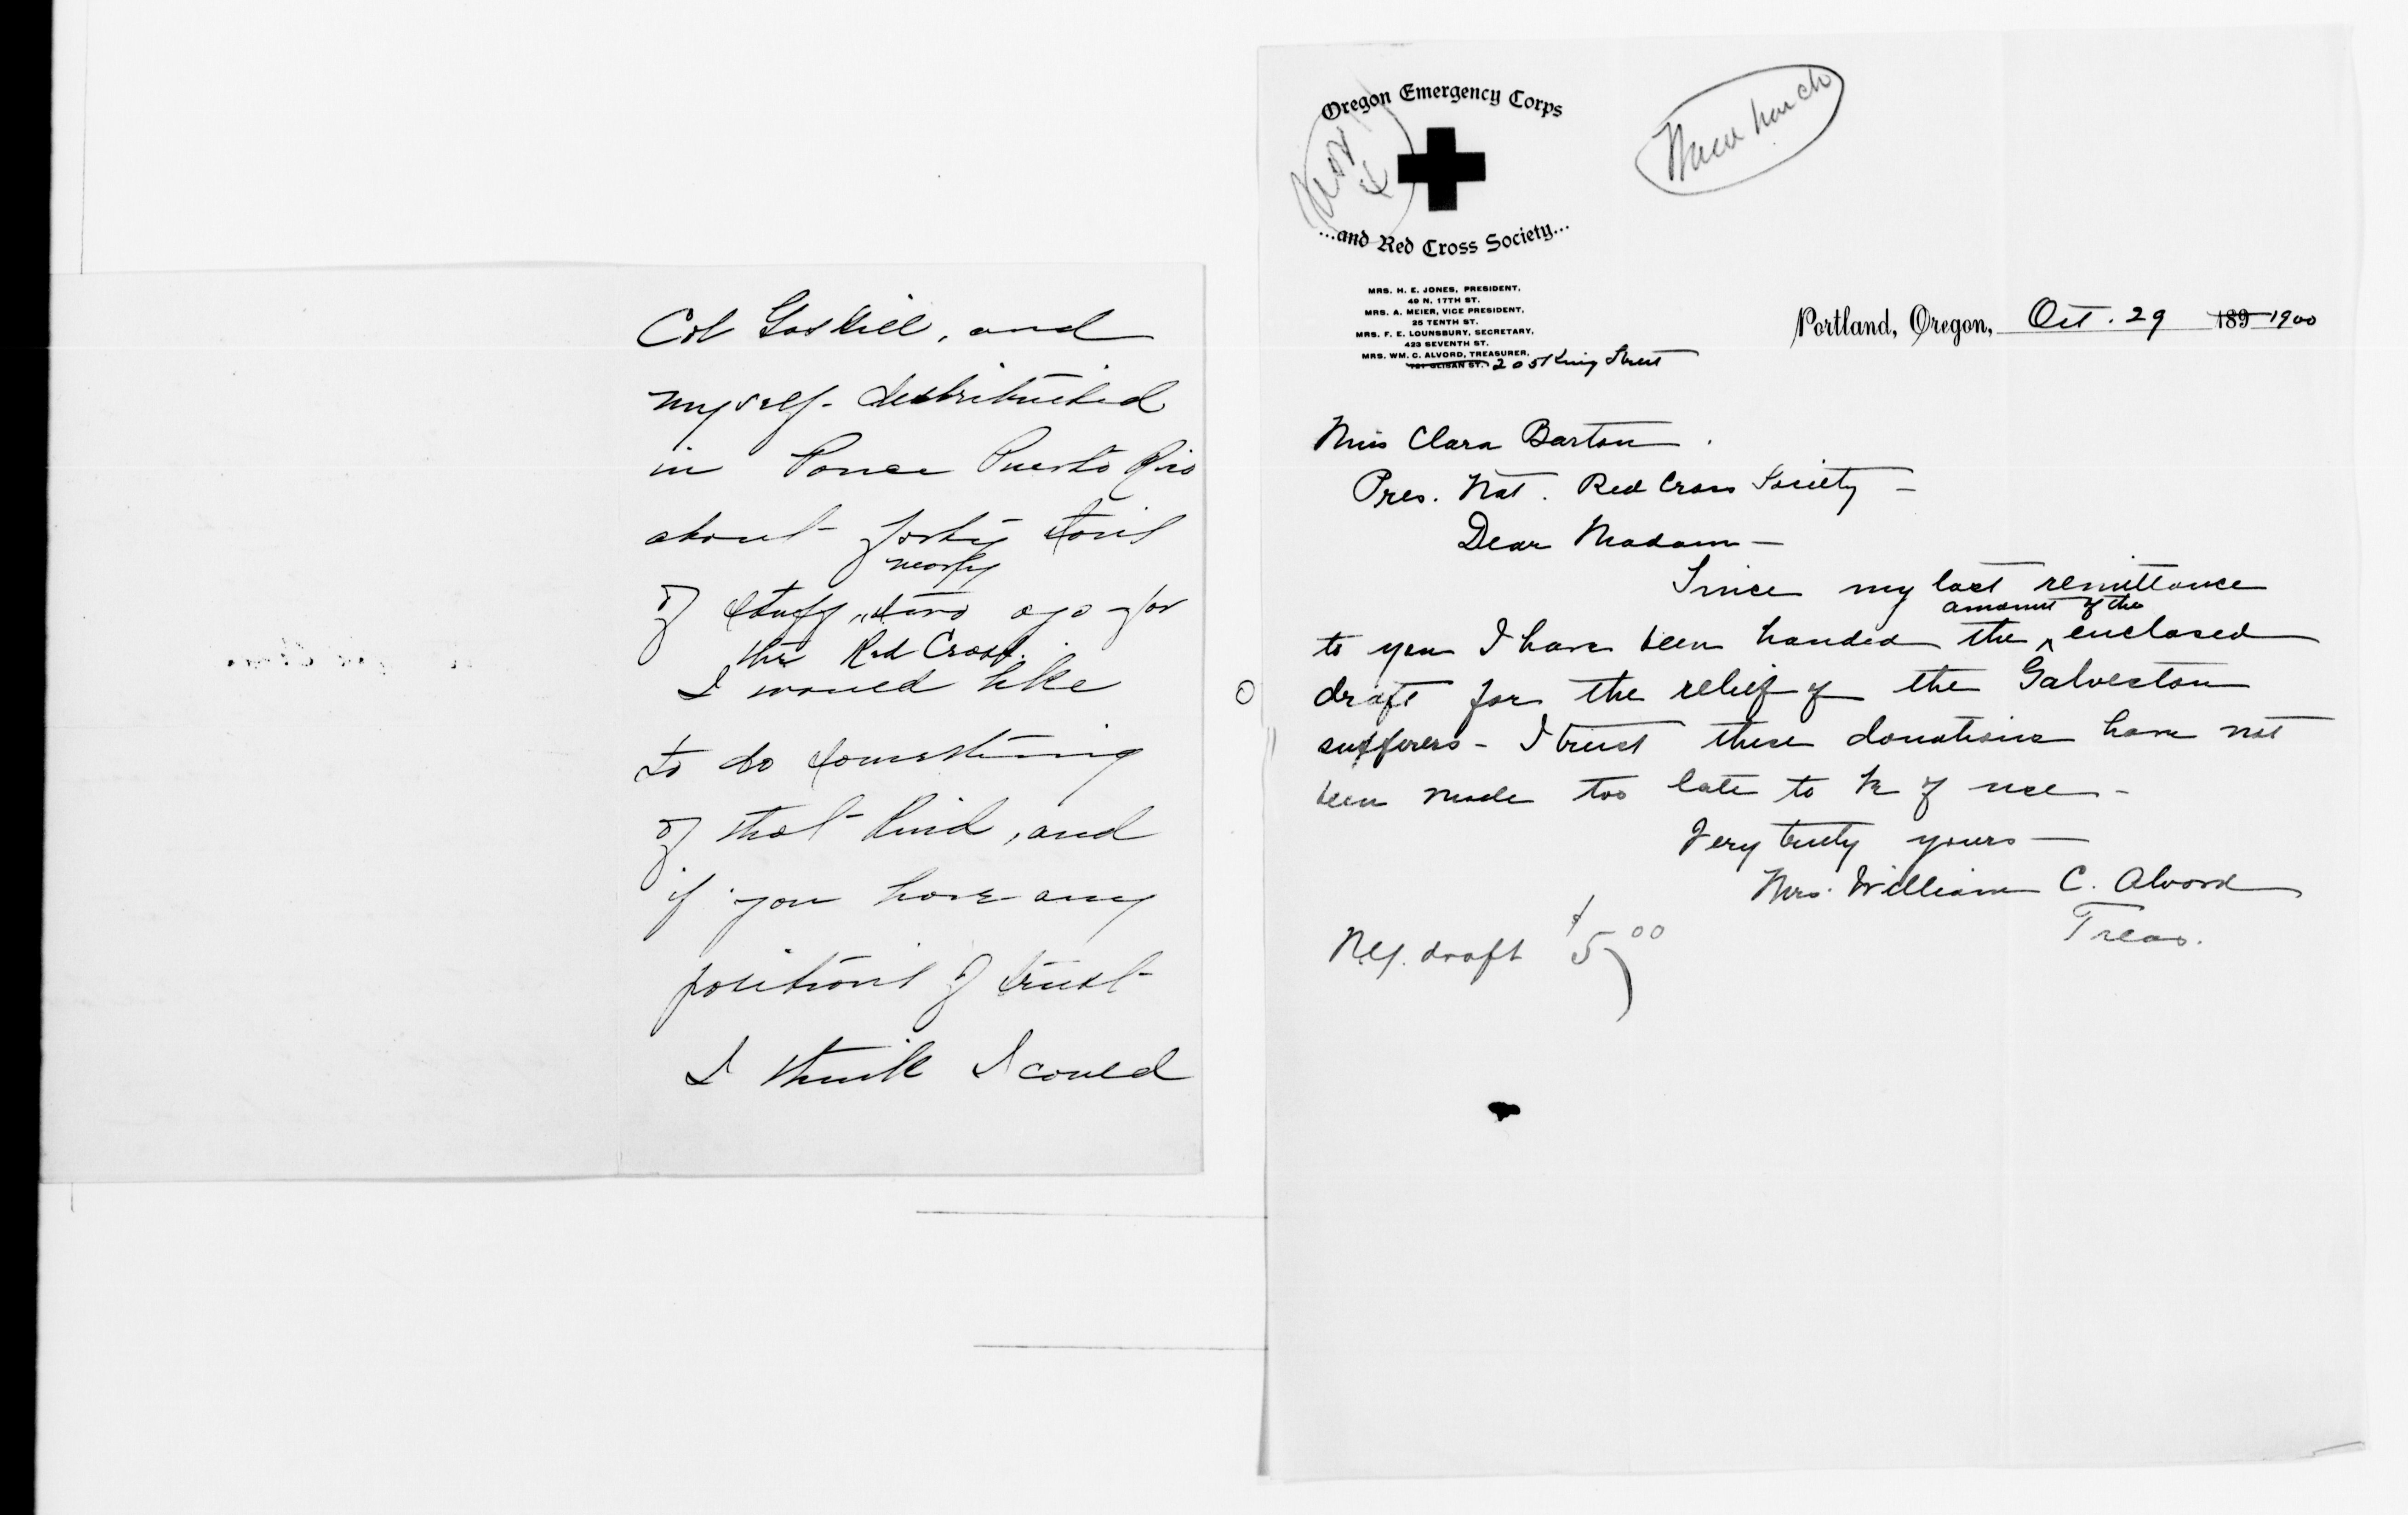 Col Gaskill, and
myself distributed
in Ponce Puerto Rico
about forty tons
nearly
of stuff, two ago for
the Red Cross.
I would like
to do something
of that kind, and
if you have any
positions of trust
I think I could
Oregon Emergency Corps
...and Red Cross Society...
Nov 4
MRS. H. E. JONES, PRESIDENT,
49 N. 17TH ST.
MRS. A. MEIER, VICE PRESIDENT,
25 TENTH ST.
MRS. F. E. LOUNSBURY, SECRETARY,
423 SEVENTH ST.
MRS. WM. C. ALVORD, TREASURER,
GLISAN ST. 205 King Street
Portland, Oregon, Oct. 29 189 1900
Miss Clara Barton.
Pres. Nat. Red Cross Society -
Dear Madam -
Since my last remittance
amount of the
to you I have been handed the ^ enclosed
draft for the relief of the Galveston
sufferers - I trust these donations have not
been made too late to be of use -
Very truly yours -
Mrs. William C. Alvord
Treas.
N.Y. draft $5 00